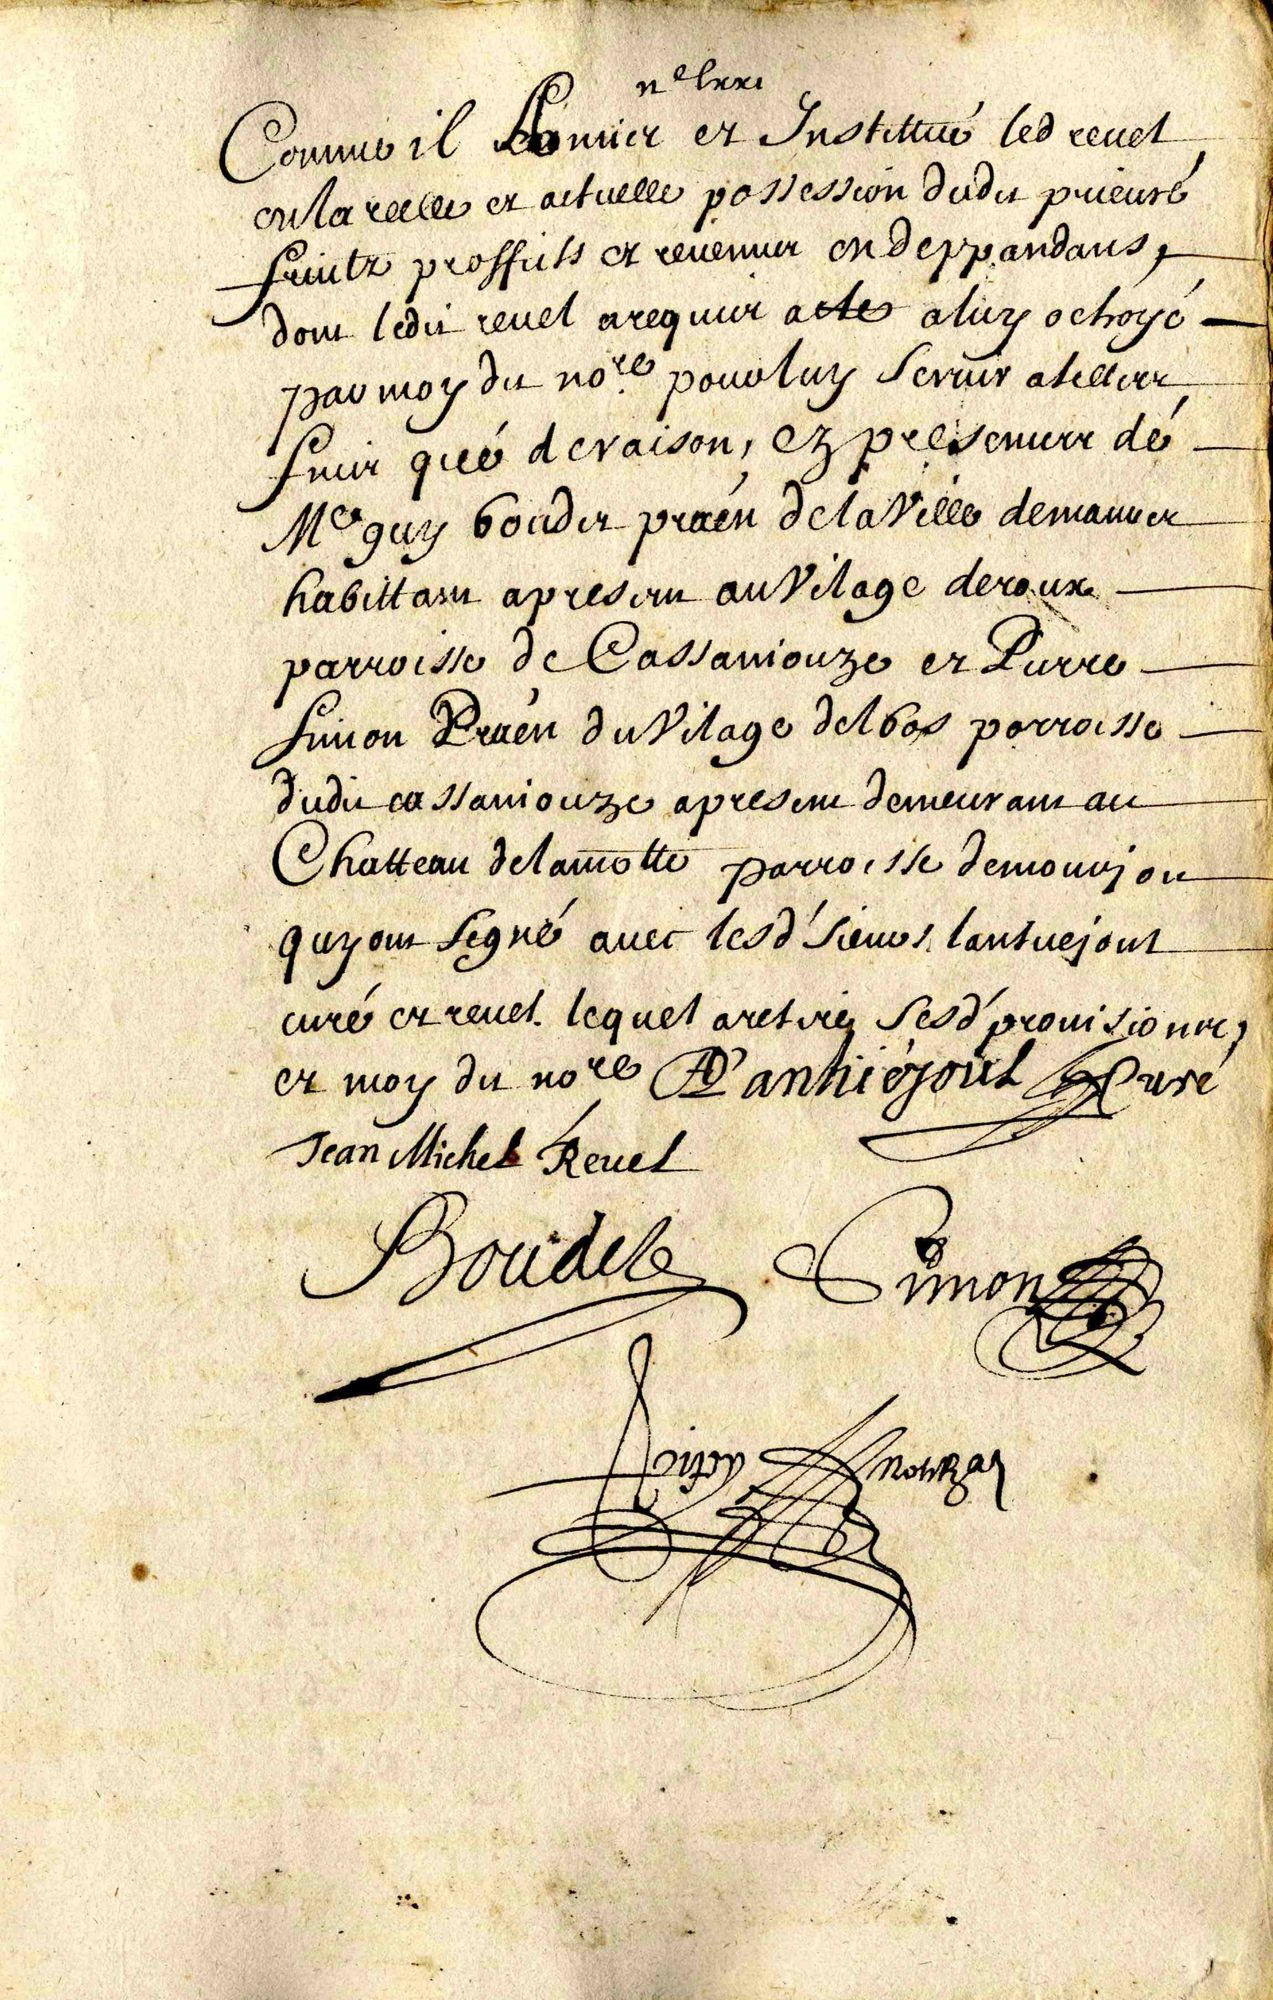 Comme il a mis et Institué led revel
en la reelle et actuelle possession dudit prieuré
fruitz proffits et revenus en deppandans,
dont ledit revel a requis acte a luy octroyé
par moy dit no.re pour luy servir a telles
fins que de raison, ez presences de
Me guy boudet praën de la Ville de
habittant a present au Vilage de roux
parroisse de Cassaniouze et Pierre
Simon Praën du Vilage del bos parroisse
dudit cassaniouze a present demeurant au
Chatteau de la motte parroisse de mourjou
quy ont signé avec lesd. sieurs lantuejoul
curé et revel. lequel a retiré sesd. provisions,
et moy dit no.re Lantuéjoul Curé
Jean Michel Revel
Boudet Simon